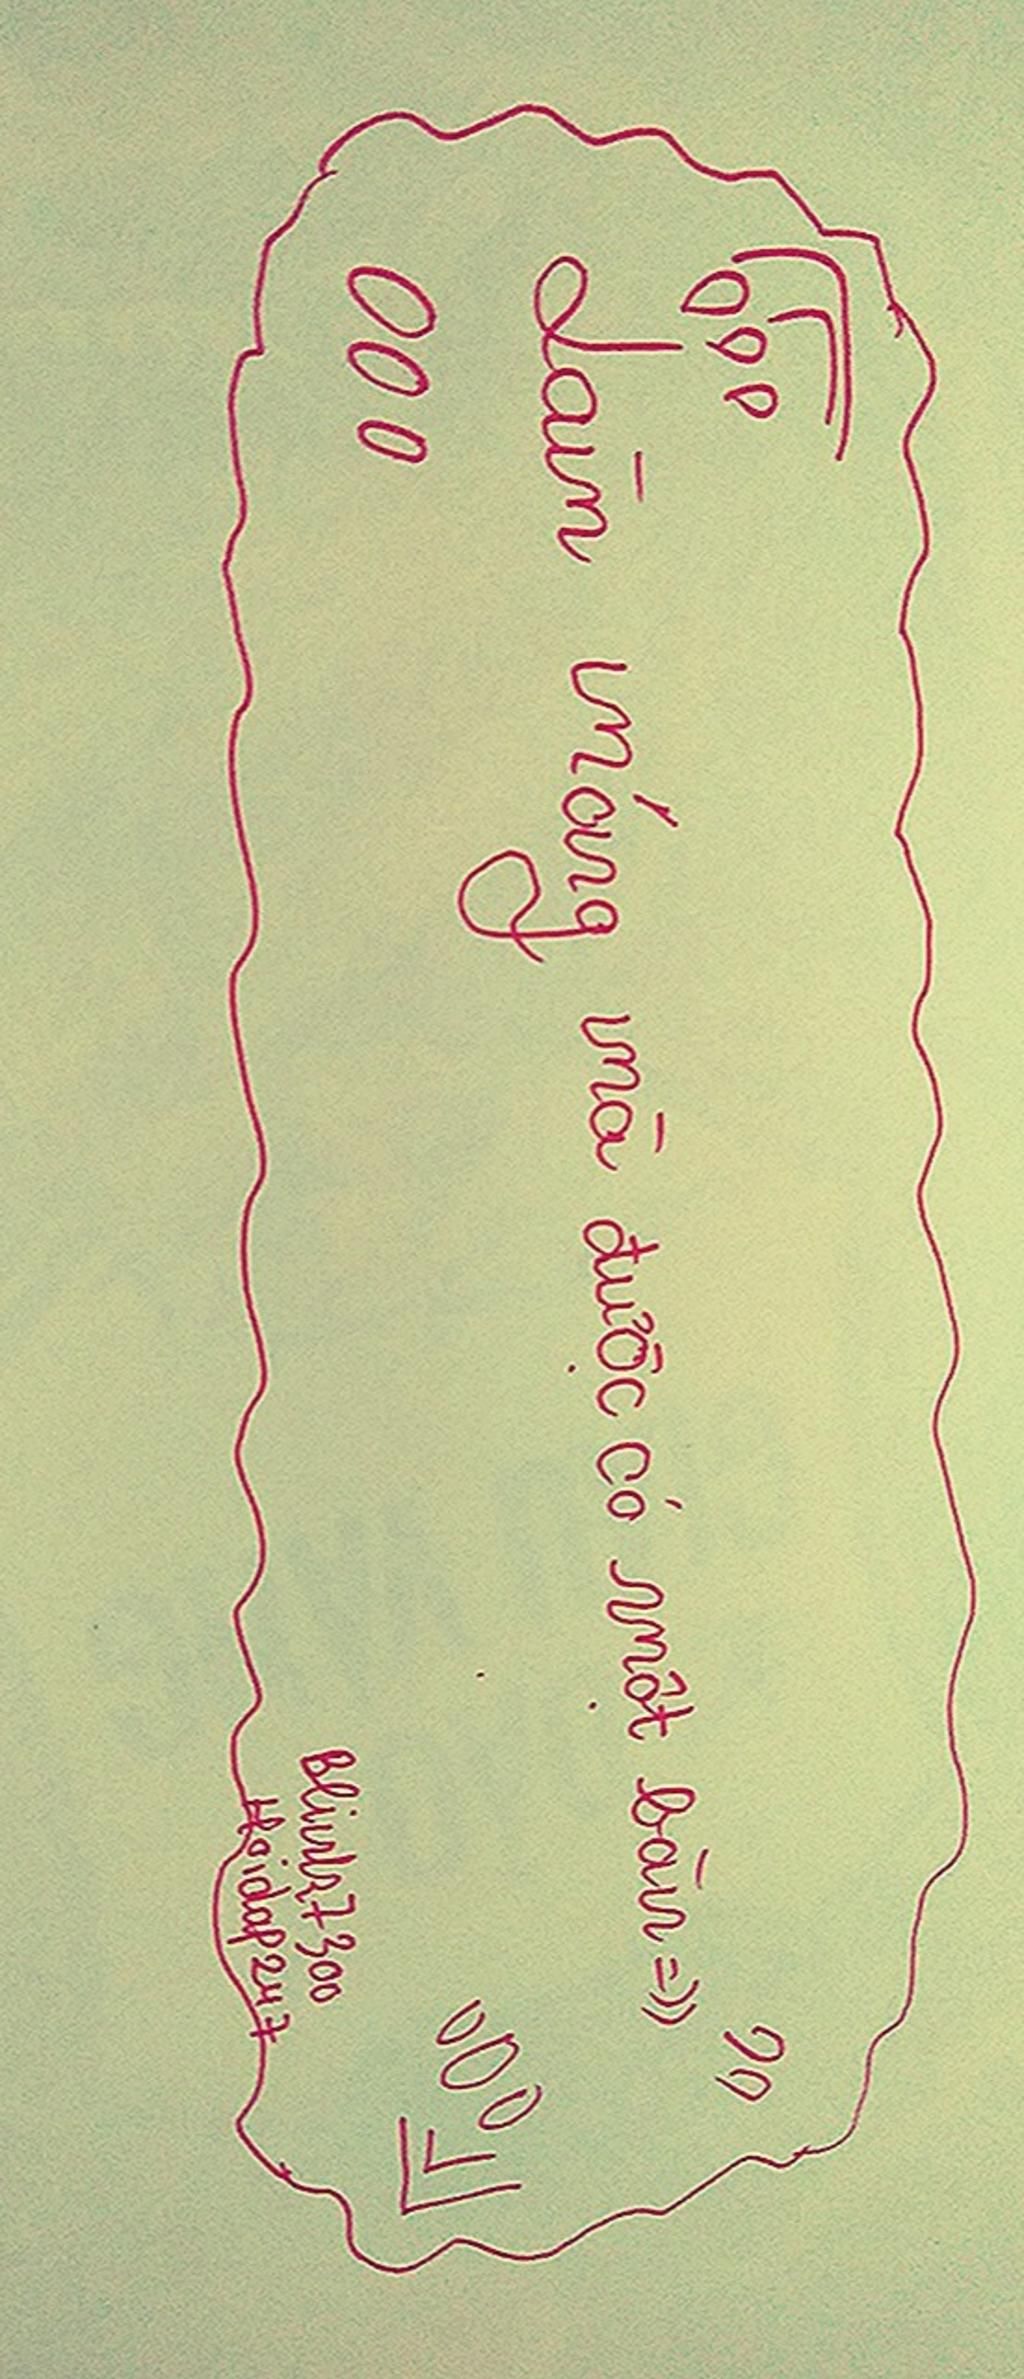 Làm móng mà được có một bàn =))
Blinh27300
Hoidap247